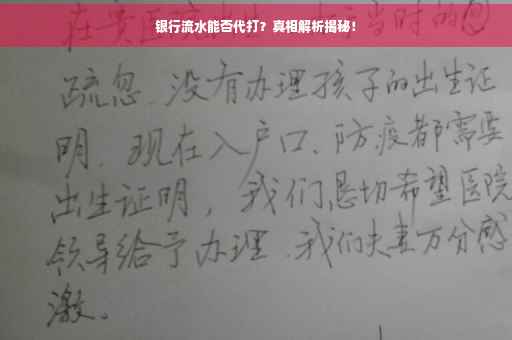 银行流水能否代打？真相解析揭秘！
当时的
疏忽、没有办理孩子的出生证
明、现在入户口、防疫都需要
出生证明，我们恳切希望医院
领导给予办理、我们夫妻万分感
激。